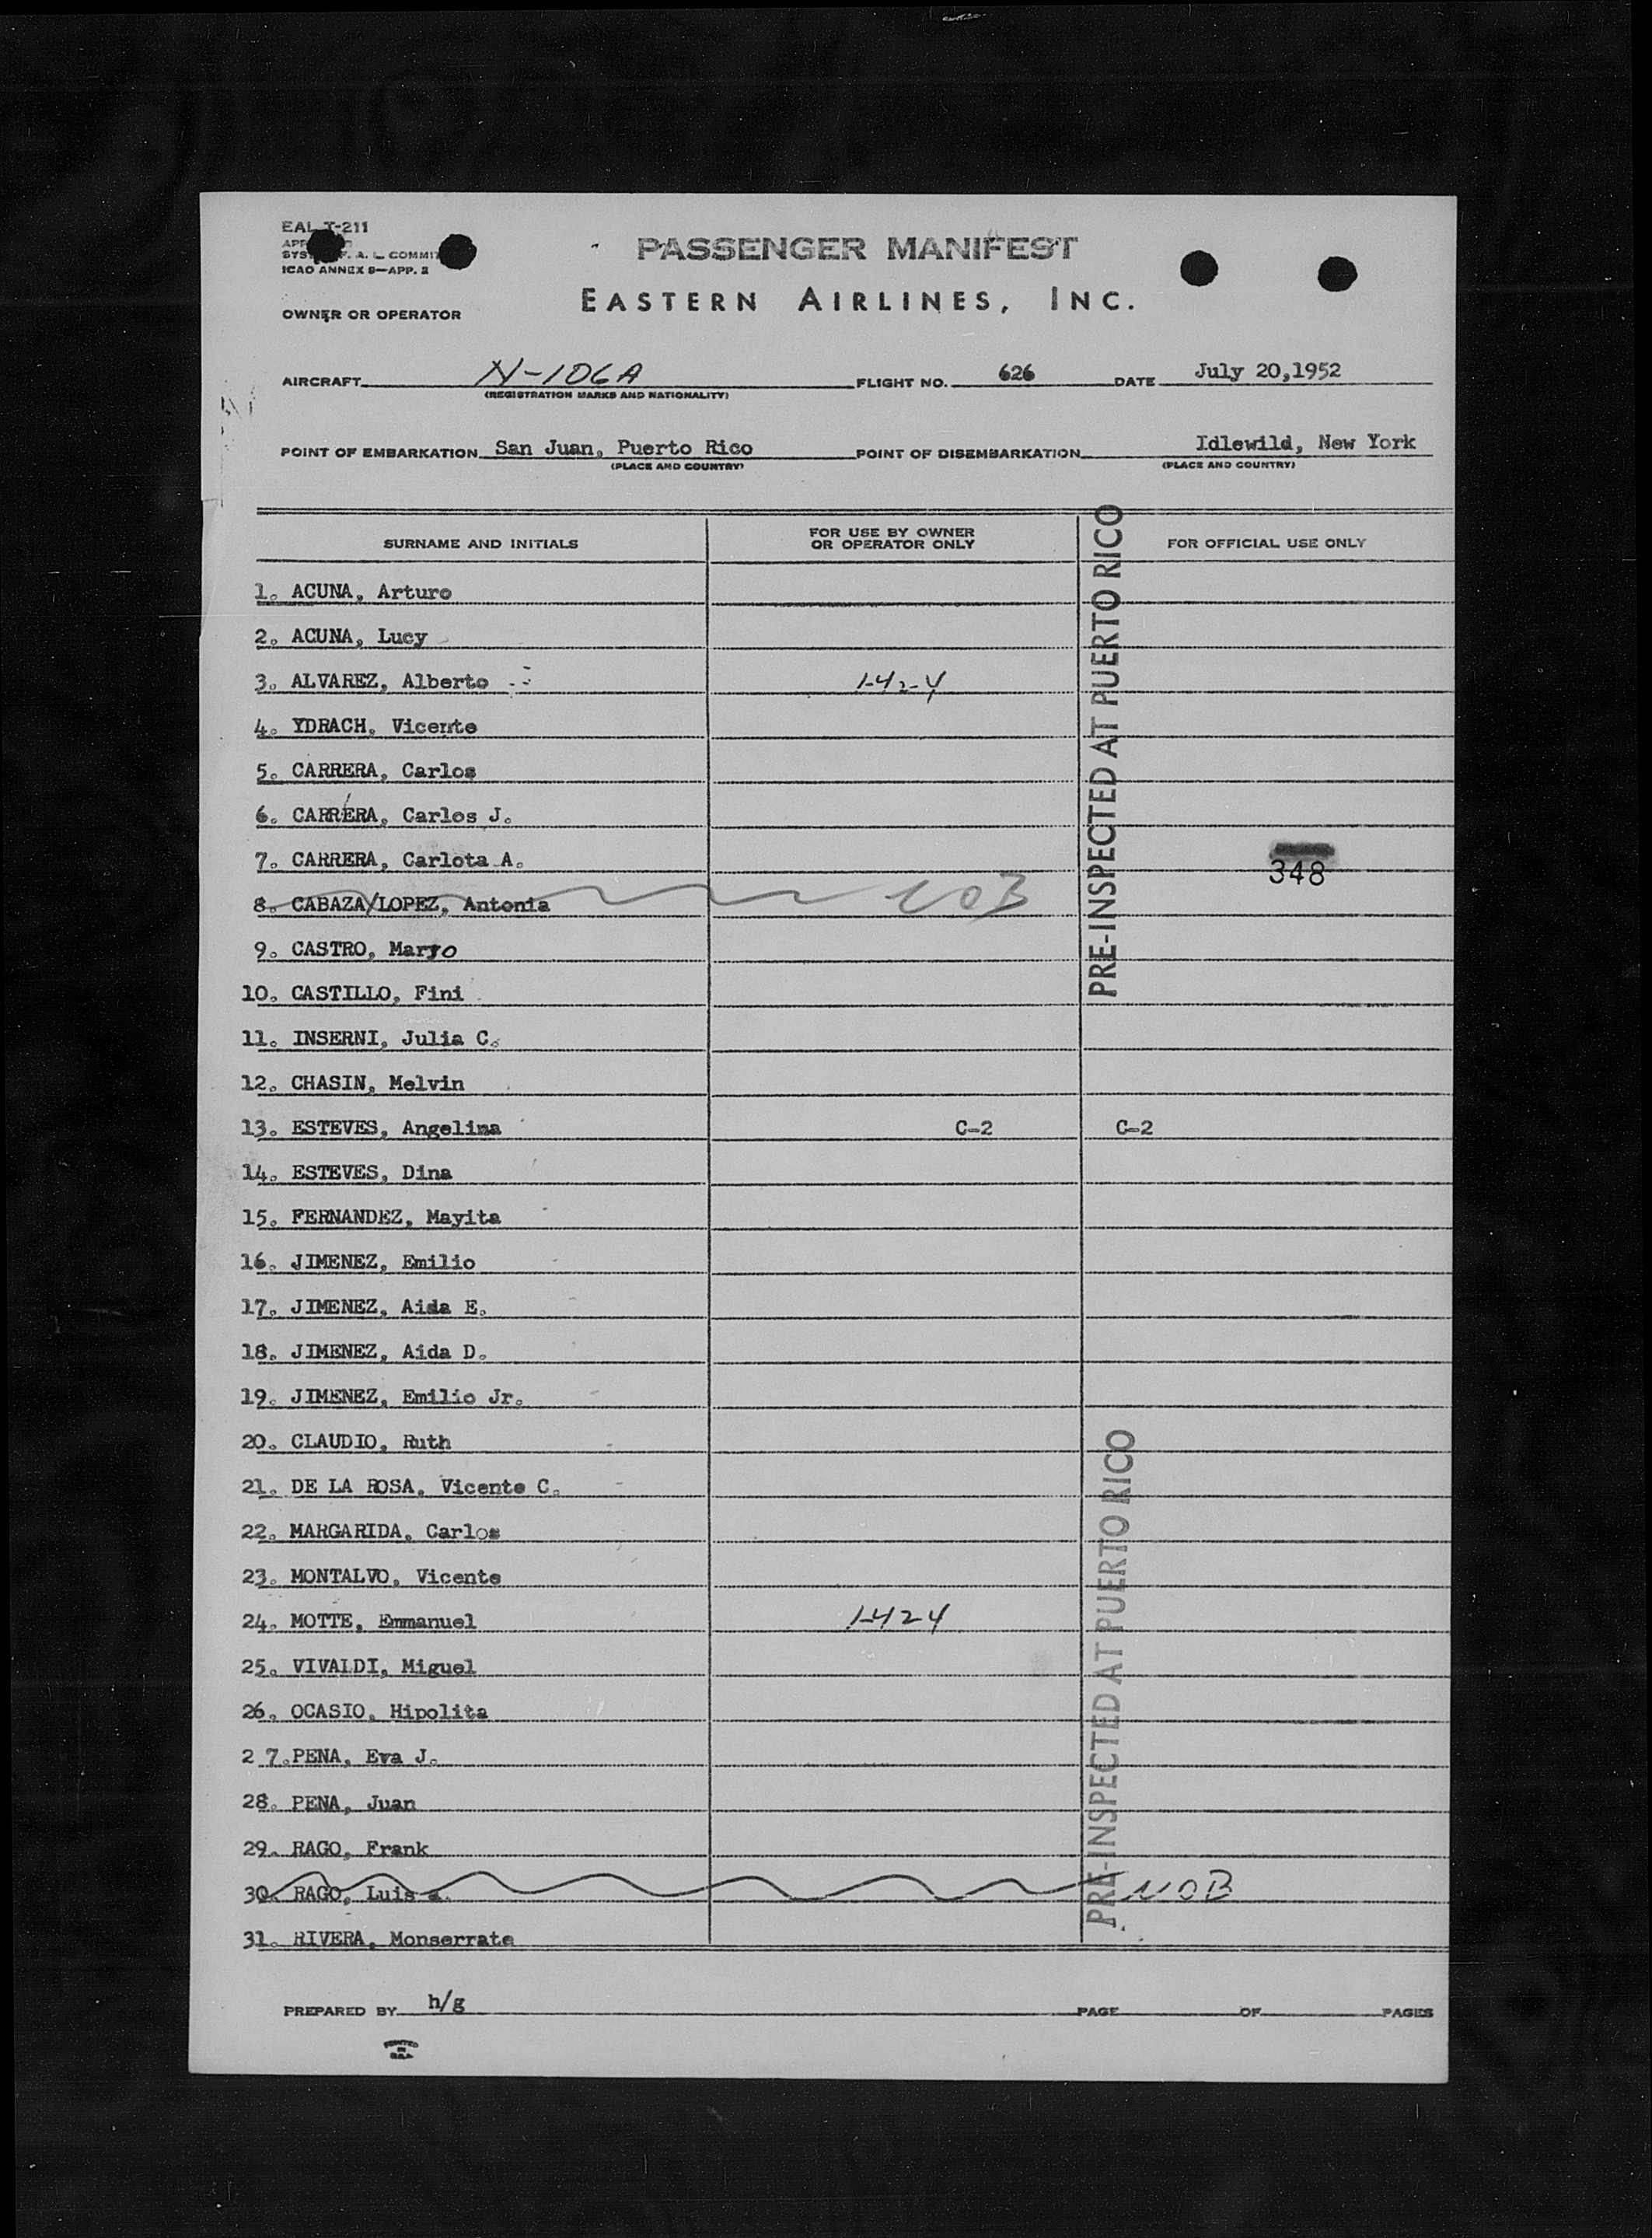 EAL T-211
SYS F. A. L. COMMIT
ICAO ANNEX 9—APP. 2
PASSENGER MANIFEST
EASTERN AIRLINES, INC.
OWNER OR OPERATOR
AIRCRAFT N-106A FLIGHT NO. 626 DATE July 20,1952
(REGISTRATION MARKS AND NATIONALITY)
POINT OF EMBARKATION San Juan, Puerto Rico POINT OF DISEMBARKATION Idlewild, New York
(PLACE AND COUNTRY) (PLACE AND COUNTRY)
SURNAME AND INITIALS FOR USE BY OWNER OR OPERATOR ONLY FOR OFFICIAL USE ONLY
PRE-INSPECTED AT PUERTO RICO
1. ACUNA, Arturo
2. ACUNA, Lucy
3. ALVAREZ, Alberto 1-424
4. YDRACH, Vicente
5. CARRERA, Carlos
6. CARRERA, Carlos J.
7. CARRERA, Carlota A.
348
8. CABAZA/LOPEZ, Antonia NOB
9. CASTRO, Maryo
10. CASTILLO, Fini
11. INSERNI, Julia C.
12. CHASIN, Melvin
13. ESTEVES, Angelina C-2 C-2
14. ESTEVES, Dina
15. FERNANDEZ, Mayita
16. JIMENEZ, Emilio
17. JIMENEZ, Aida E.
18. JIMENEZ, Aida D.
19. JIMENEZ, Emilio Jr.
20. CLAUDIO, Ruth
21. DE LA ROSA, Vicente C.
22. MARGARIDA, Carlos
23. MONTALVO, Vicente
24. MOTTE, Emmanuel 1-424
25. VIVALDI, Miguel
26. OCASIO, Hipolita
2 7.PENA, Eva J.
28. PENA, Juan
29. RAGO, Frank
30. RAGO, Luis a. NOB
31. RIVERA, Monserrate
PRE-INSPECTED AT PUERTO RICO
PREPARED BY h/g PAGE OF PAGES
PRINTED
IN
U.S.A.